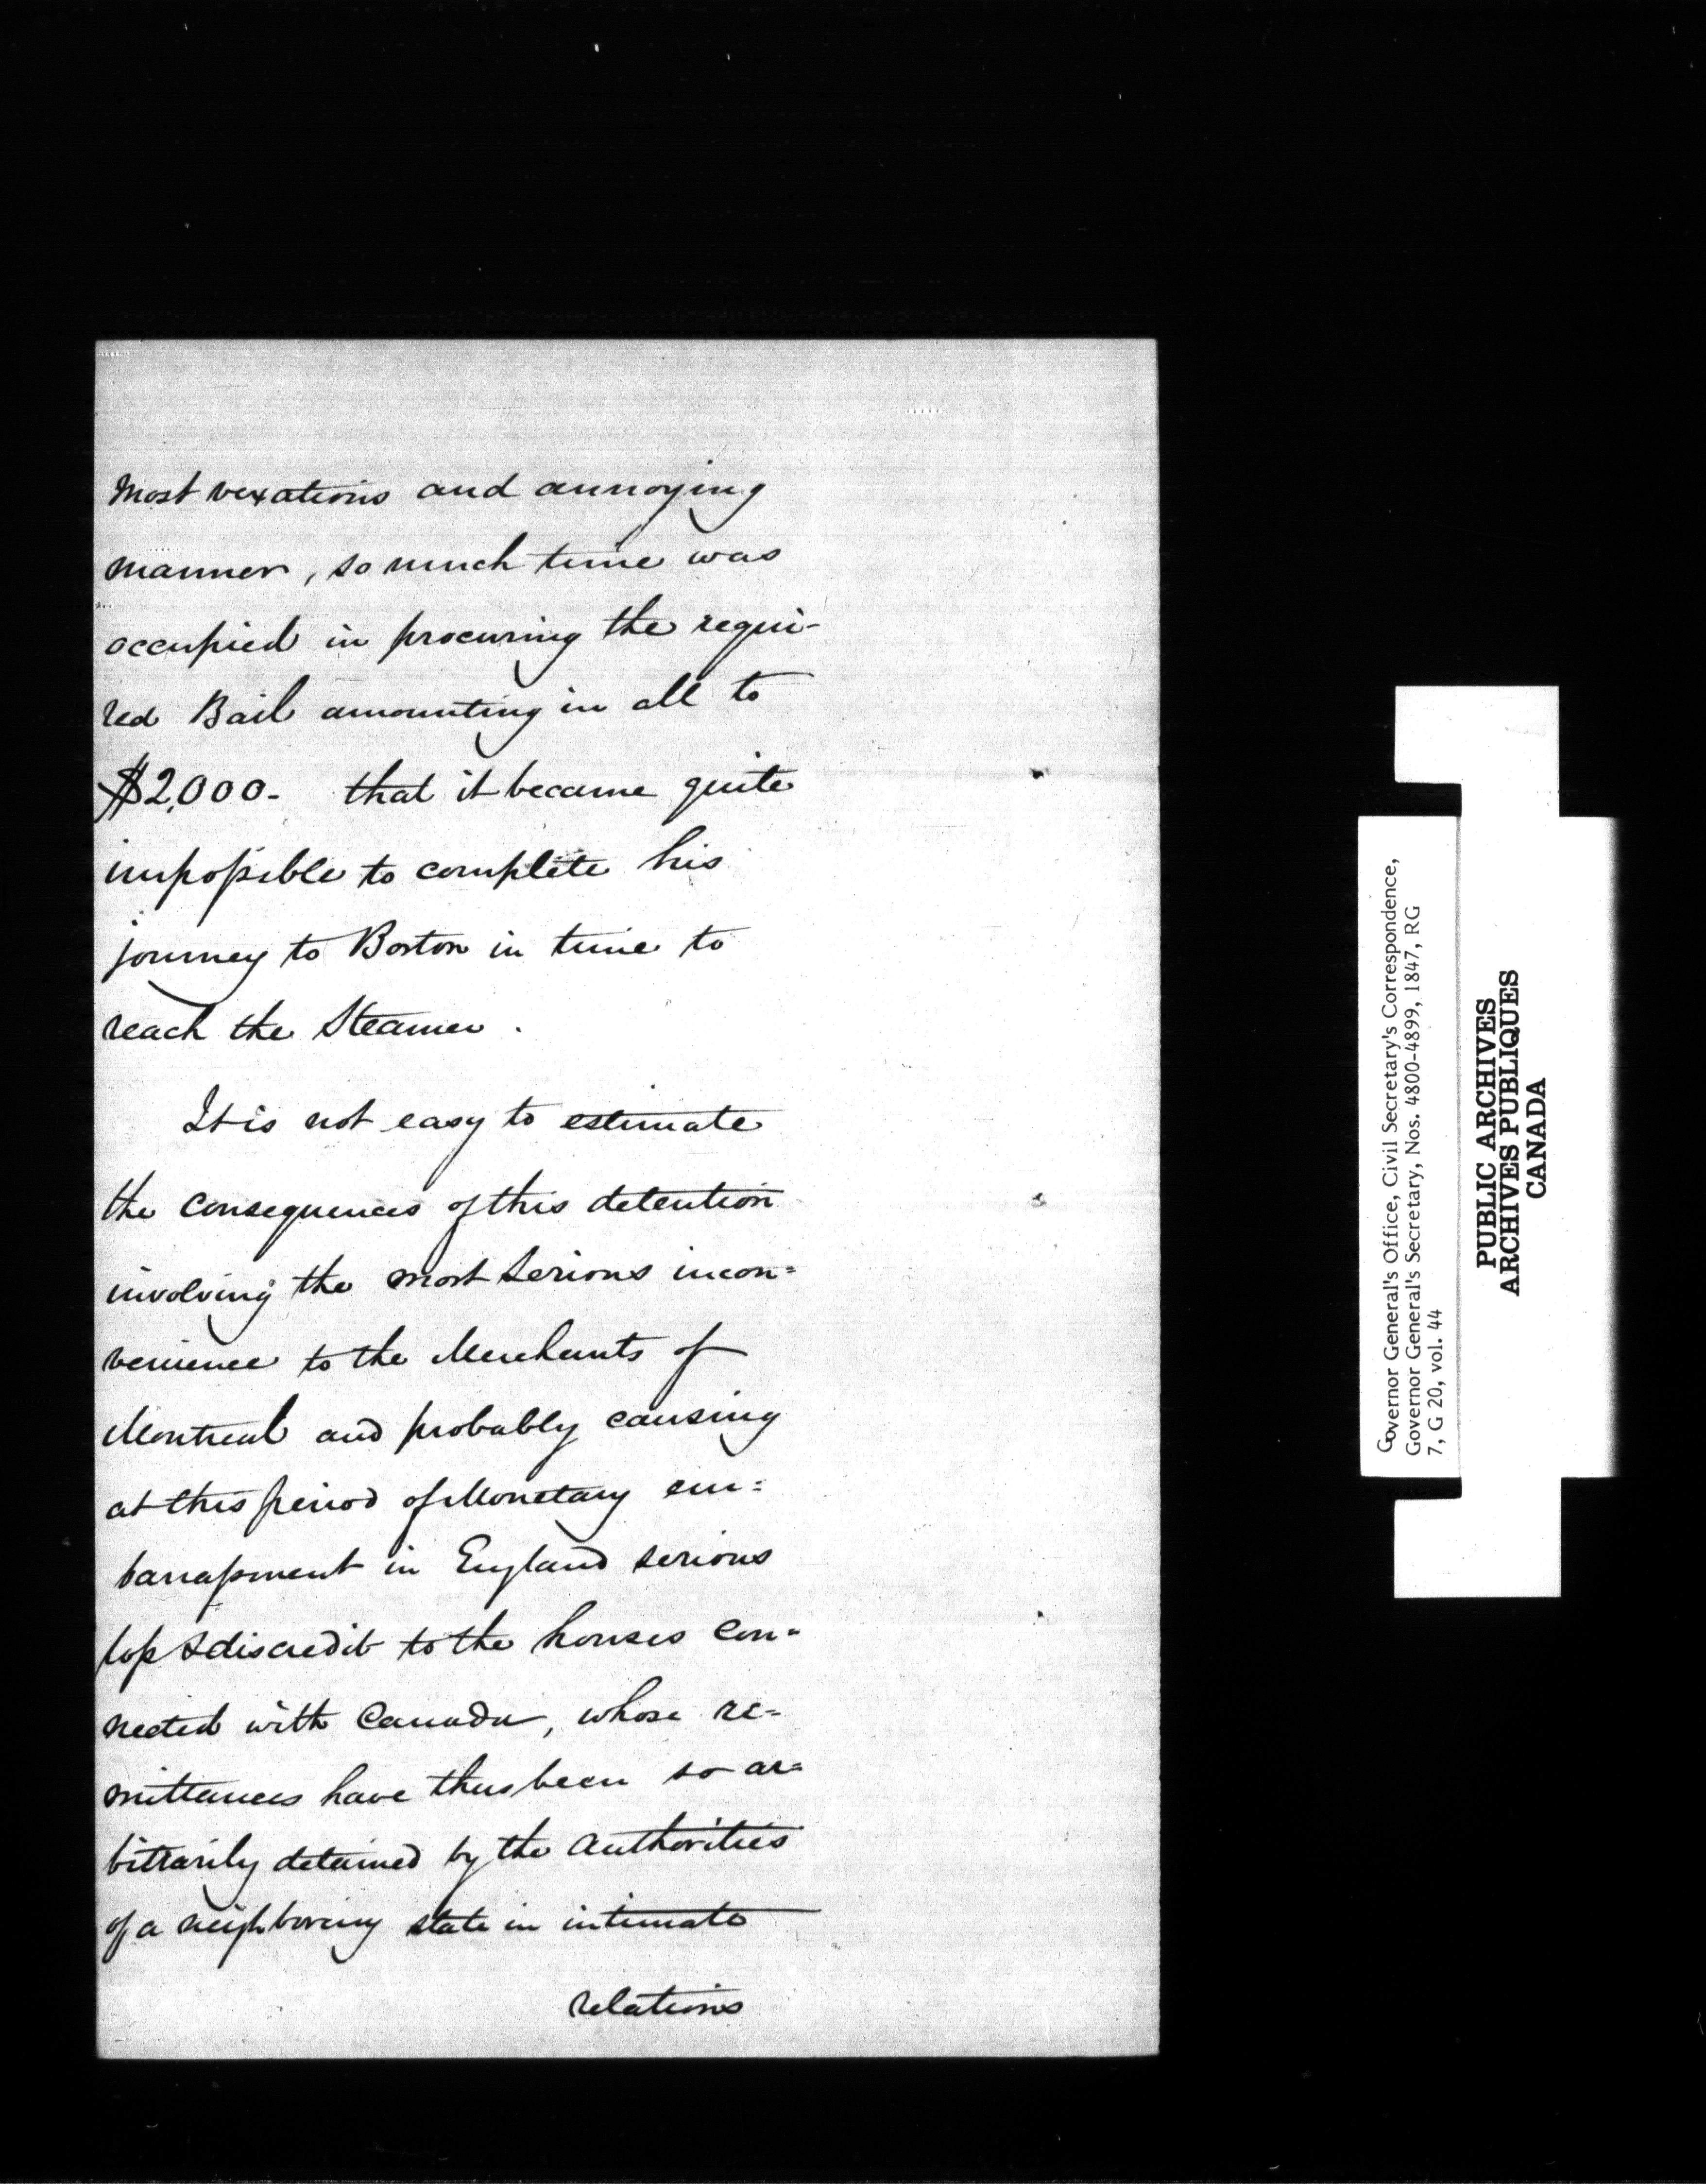 most vexatious and annoying
manner, so much time was
occupied in procuring the requi-
red Bail amounting in all to
$2,000- that it became quite
impossible to complete his
journey to Boston in time to
reach the Steamer.
It is not easy to estimate
the consequences of this detention
involving the most serious incon=
venience to the Merchants of
Montreal and probably causing
at this period of Monetary em=
barassment in England serious
loss & discredit to the houses con=
nected with Canada, whose re=
mittances have thus been so ar=
bittrarily detained by the authorities
of a neighboring state in intimate
relations
Governor General's Office, Civil Secretary's Correspondence,
Governor General's Secretary, Nos. 4800-4899, 1847, RG
7, G 20, vol. 44
PUBLIC ARCHIVES
ARCHIVES PUBLIQUES
CANADA